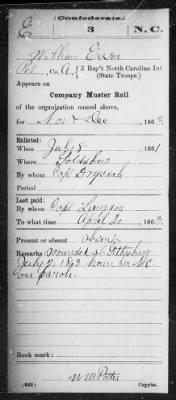 E
Confederate.
3 N.C.
William
Co. A, 3 Reg't North Carolina Inf.
(State Troops.)
Appears on
Company Muster Roll
of the organization named above,
for Nov & Dec, 1863
Enlisted:
When July 8, 1861
Where Goldsboro
By whom Cap
Period
Last paid:
By whom Capt
To what time 1863
Present or absent absent
Remarks: wounded at Gettysburg
July 1863 NC
on parole.
Book mark:
(642) Copyist.